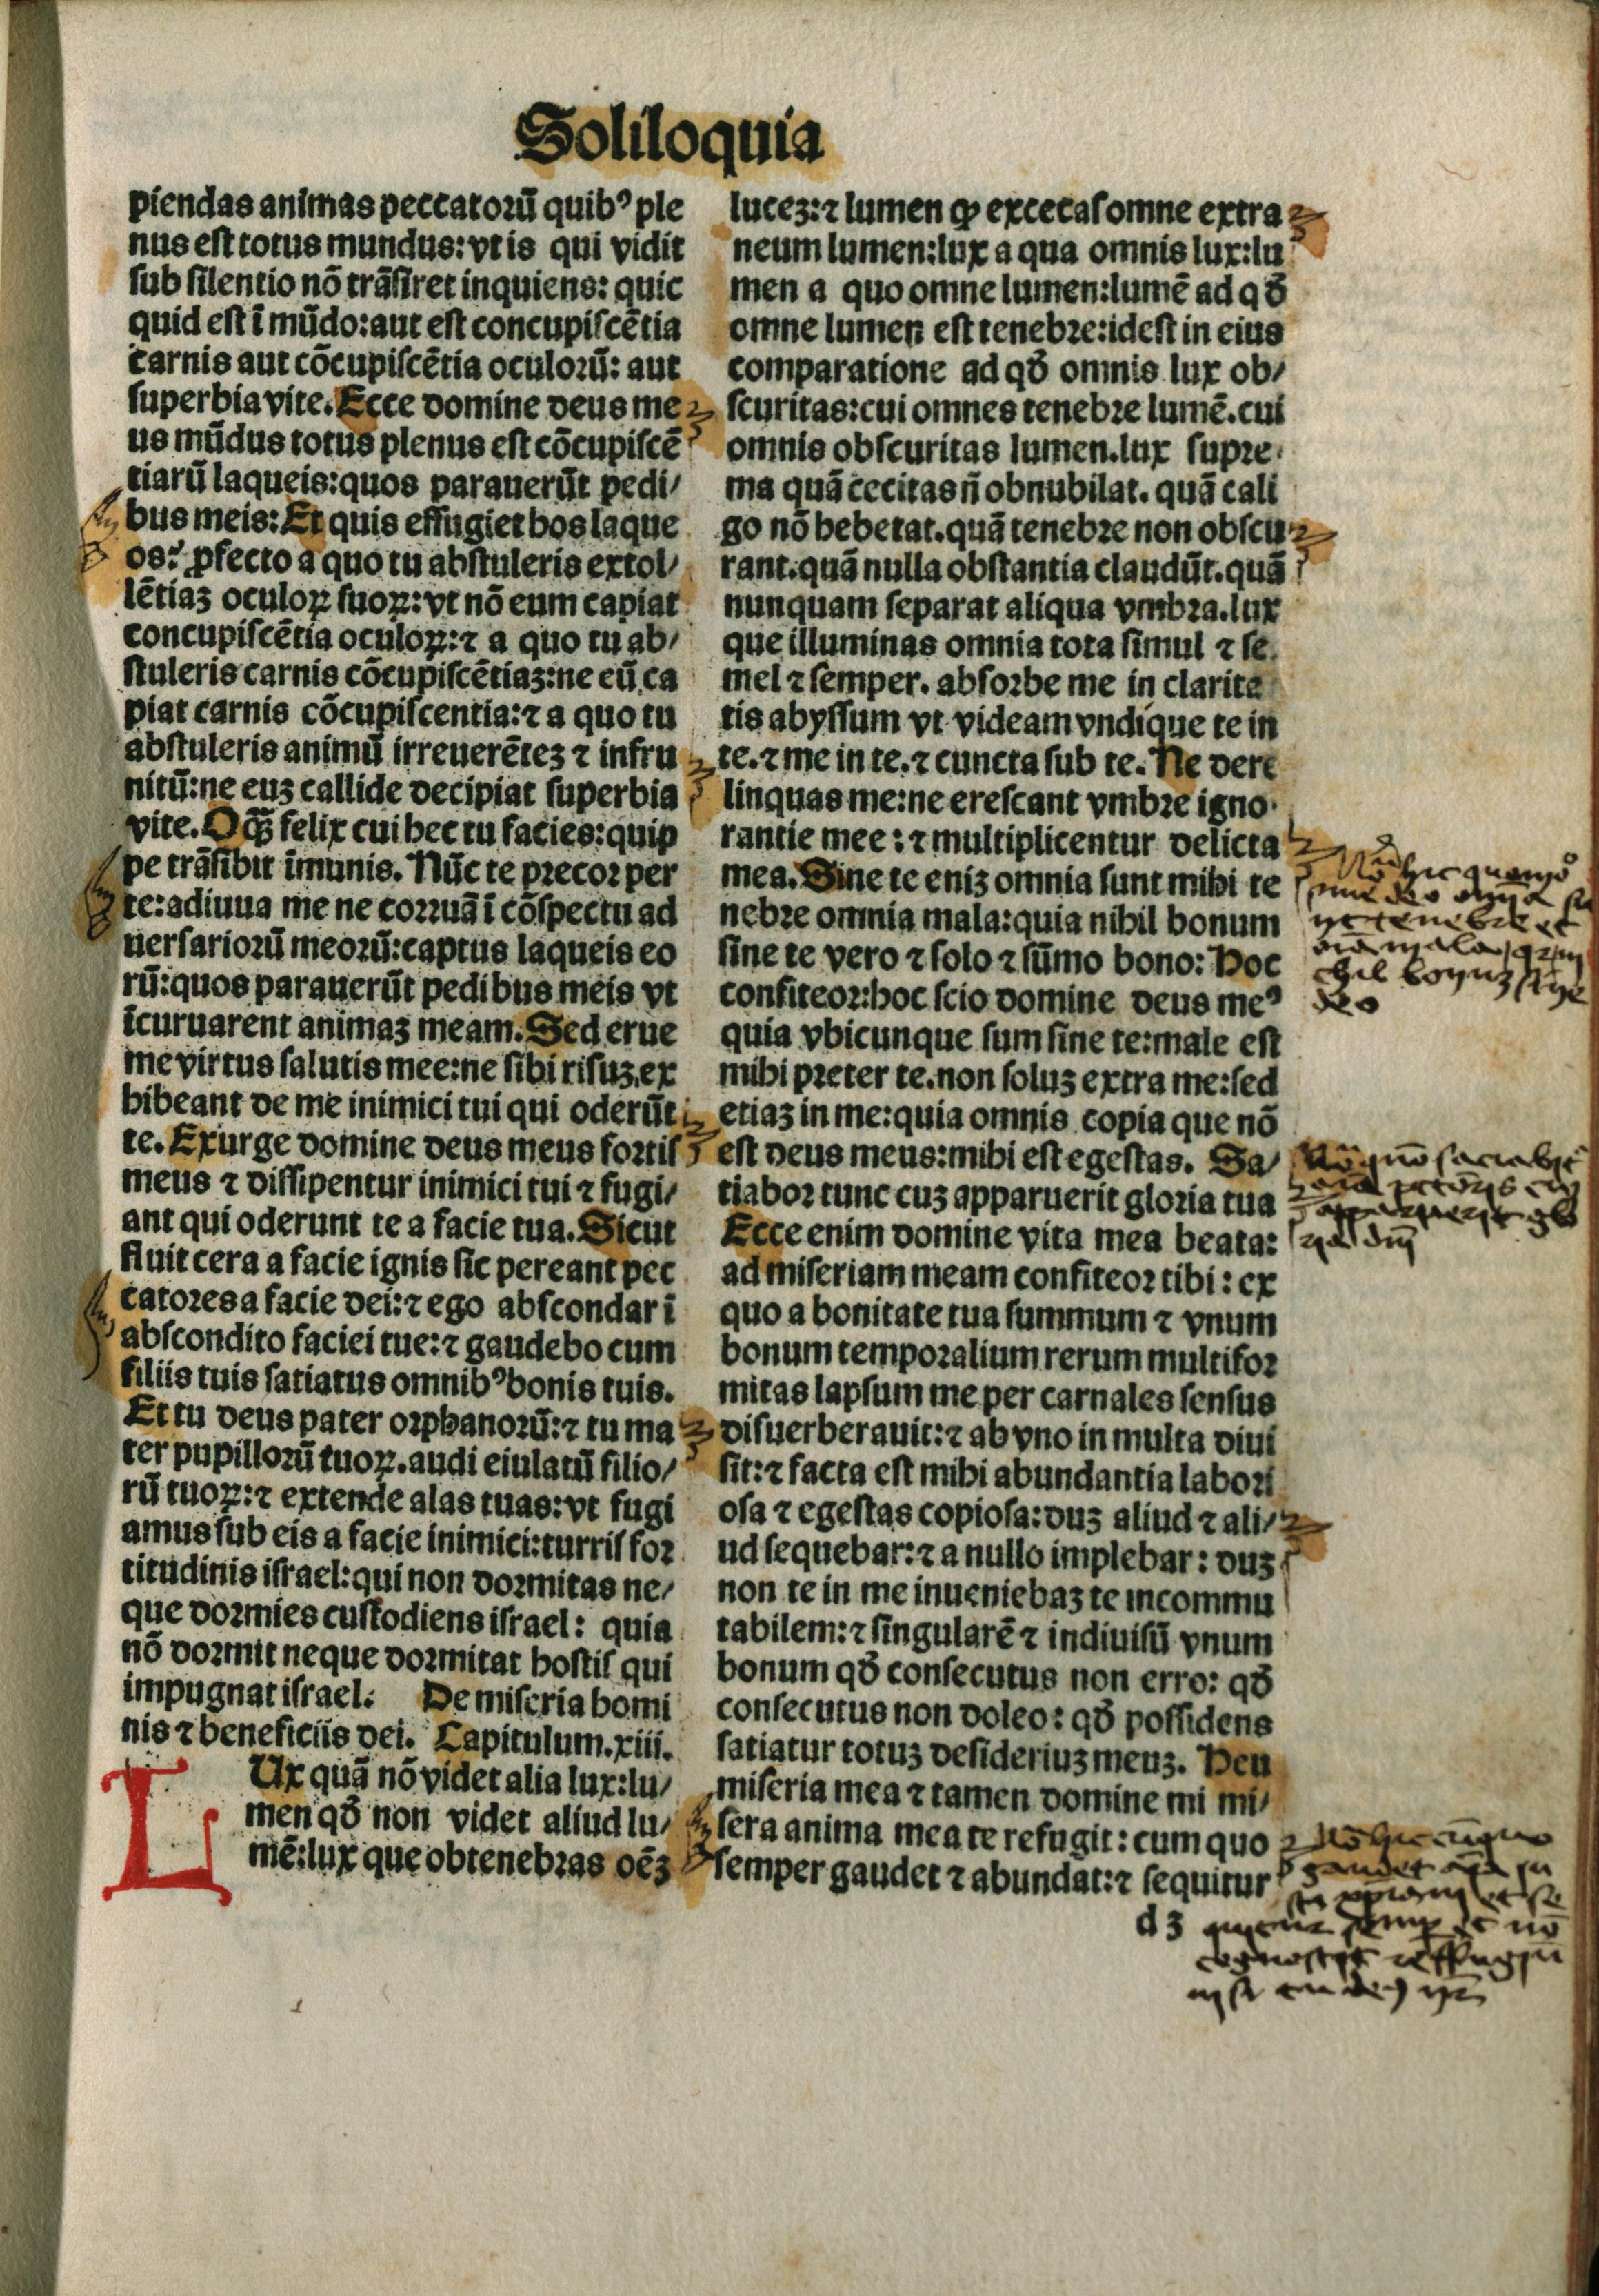 Soliloquia
piendas animas peccatorũ quibꝰ ple
nus est totus mundus: vt is qui vidit
sub silentio nõ trãsiret inquiens: quic
quid est ĩ mũdo: aut est concupiscẽtia
carnis aut cõcupiscẽtia oculorũ: aut
superbia vite. Ecce domine deus me
us mũdus totus plenus est cõcupiscẽ
tiarũ laqueis: quos parauerũt pedi/
bus meis: Et quis effugiet hos laque
os? ꝓfecto a quo tu abstuleris extol/
lẽtiaꝫ oculoꝝ suoꝝ: vt nõ eum capiat
concupiscẽtia oculoꝝ: ⁊ a quo tu ab/
stuleris carnis cõcupiscẽtiaꝫ: ne eũ ca
piat carnis cõcupiscentia: ⁊ a quo tu
abstuleris animũ irreuerẽteꝫ ⁊ infru
nitũ: ne euꝫ callide decipiat superbia
vite. O ꝙ̃ felix cui hec tu facies: quip
pe trãsibit ĩmunis. Nũc te precor per
te: adiuua me ne corruã ĩ cõspectu ad
uersariorũ meorũ: captus laqueis eo
rũ: quos parauerũt pedibus meis vt
ĩcuruarent animaꝫ meam. Sed erue
me virtus salutis mee: ne sibi risuꝫ ex
hibeant de me inimici tui qui oderũt
te. Exurge domine deus meus fortis
meus ⁊ dissipentur inimici tui ⁊ fugi/
ant qui oderunt te a facie tua. Sicut
fluit cera a facie ignis sic pereant pec
catores a facie dei: ⁊ ego abscondar ĩ
abscondito faciei tue: ⁊ gaudebo cum
filiis tuis satiatus omnibꝰ bonis tuis.
Et tu deus pater orphanorũ: ⁊ tu ma
ter pupillorũ tuoꝝ. audi eiulatũ filio/
rũ tuoꝝ: ⁊ extende alas tuas: vt fugi
amus sub eis a facie inimici: turris for
titudinis israel: qui non dormitas ne/
que dormies custodiens israel: quia
nõ dormit neque dormitat hostis qui
impugnat israel. De miseria homi
nis ⁊ beneficiis dei. Capitulum. xiii.
LUx quã nõ videt alia lux: lu/
men qð non videt aliud lu/
mẽ: lux que obtenebras oẽꝫ
luceꝫ: ⁊ lumen ꝙ excecas omne extra
neum lumen: lux a qua omnis lux: lu
men a quo omne lumen: lumẽ ad qð
omne lumen est tenebre: idest in eius
comparatione ad qð omnis lux ob/
scuritas: cui omnes tenebre lumẽ. cui
omnis obscuritas lumen. lux supre
ma quã cecitas ñ obnubilat. quã cali
go nõ hebetat. quã tenebre non obscu
rant. quã nulla obstantia claudũt. quã
nunquam separat aliqua vmbra. lux
que illuminas omnia tota simul ⁊ se
mel ⁊ semper. absorbe me in clarita
tis abyssum vt videam vndique te in
te. ⁊ me in te. ⁊ cuncta sub te. Ne dere
linquas me: ne crescant vmbre igno
rantie mee: ⁊ multiplicentur delicta
mea. Sine te eniꝫ omnia sunt mihi te
nebre omnia mala: quia nihil bonum
sine te vero ⁊ solo ⁊ sũmo bono: Hoc
confiteor: hoc scio domine deus meꝰ
quia vbicunque sum sine te: male est
mihi preter te. non soluꝫ extra me: sed
etiaꝫ in me: quia omnis copia que nõ
est deus meus: mihi est egestas. Sa/
tiabor tunc cuꝫ apparuerit gloria tua
Ecce enim domine vita mea beata:
ad miseriam meam confiteor tibi: ex
quo a bonitate tua summum ⁊ vnum
bonum temporalium rerum multifor
mitas lapsum me per carnales sensus
disuerberauit: ⁊ ab vno in multa diui
sit: ⁊ facta est mihi abundantia labori
osa ⁊ egestas copiosa: duꝫ aliud ⁊ ali/
ud sequebar: ⁊ a nullo implebar: duꝫ
non te in me inueniebaꝫ te incommu
tabilem: ⁊ singularẽ ⁊ indiuisũ vnum
bonum qð consecutus non erro: qð
consecutus non doleo: qð possidens
satiatur totuꝫ desideriuꝫ meuꝫ. Heu
miseria mea ⁊ tamen domine mi mi/
sera anima mea te refugit: cum quo
semper gaudet ⁊ abundat: ⁊ sequitur
d 3
hic quomõ
sine deo omnia su
nt tenebre et
oia mala qr ni
chil bonuz sine
deo